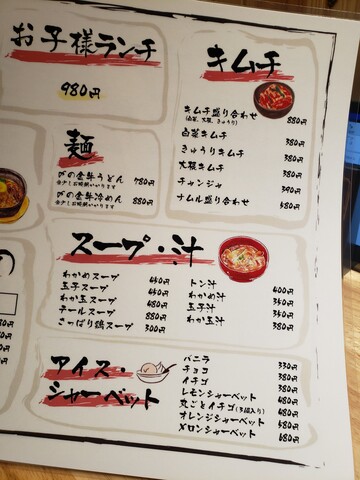 お子様ランチ
980円
麺
びの金牛うどん 780円
びの金牛冷めん 880円
キムチ
キムチ盛り合わせ 880円
(白菜、大根、きゅうり)
白菜キムチ 380円
きゅうりキムチ 380円
大根キムチ 380円
チャンジャ 390円
ナムル盛り合わせ 580円
スープ・汁
わかめスープ 450円
玉子スープ 450円
わか玉スープ 480円
テールスープ 880円
さっぱり鶏スープ 300円
トン汁 400円
わかめ汁 350円
玉子汁 350円
わか玉汁 380円
アイス・
シャーベット
バニラ 330円
チョコ 380円
イチゴ 380円
レモンシャーベット 480円
丸ごとイチゴ(3個入り) 480円
オレンジシャーベット 680円
メロンシャーベット 680円